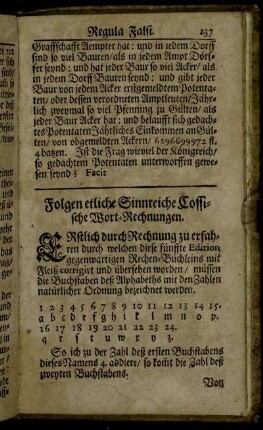 Regula Falsi. 237
Graffschafft Aempter hat: und in jedem Dorff
sind so viel Bauren/als in jedem Ampt Dörf-
fer seynd: und hat jeder Baur so viel Acker/ als
in jedem Dorff Bauren seynd: und gibt jeder
Baur von jedem Aker erstgemeldten Potenta-
ten/ oder dessen verordneten Amptleuten/Jähr-
lich zweymal so viel Pfenning zu Gülten/ als
jeder Baur Aker hat: und belaufft sich gedach-
tes Potentaten Jährliches Einkommen an Gül-
ten/ von obgemeldten Akern/ 6296699972 fl.
4 batzen. Ist die Frag wieviel der Königreich/
so gedachtem Potentaten unterworffen gewe-
sen seynd? Facit
Folgen etliche Sinnreiche Cossi-
sche Wort-Rechnungen.
ERstlich durch Rechnung zu erfah-
ren durch welchen diese fünffte Edition
gegenwärtigen Rechen-Büchleins mit
Fleiß corrigirt und übersehen worden/ müssen
die Buchstaben deß Alphabeths mit den Zahlen
natürlicher Ordnung bezeichnet werden.
1 2 3 4 5 6 7 8 9 10 11 12 13 14 15.
a b c d e f g h i k l m n o p.
16 17 18 19 20 21 22 23 24.
q r s t u w x y z.
So ich zu der Zahl deß ersten Buchstabens
dieses Namens 4. addiere/ so komt die Zahl deß
zweyten Buchstabens.
Von